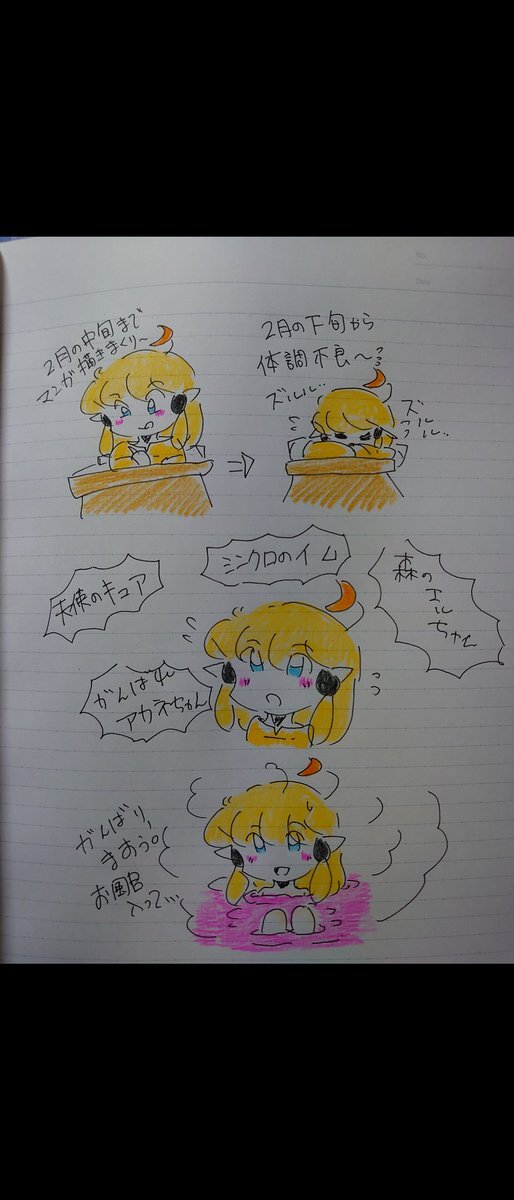 No.
Date
2月の中旬まで
マンガ描きまくり〜
2月の下旬から
体調不良〜
ズルルル..
ズルルル..
シンクロのイム
天使のキュア
森の
エル
ちゃん
がんばれ
アカネちゃん
がんばり
ましょう。
お風呂
入って…